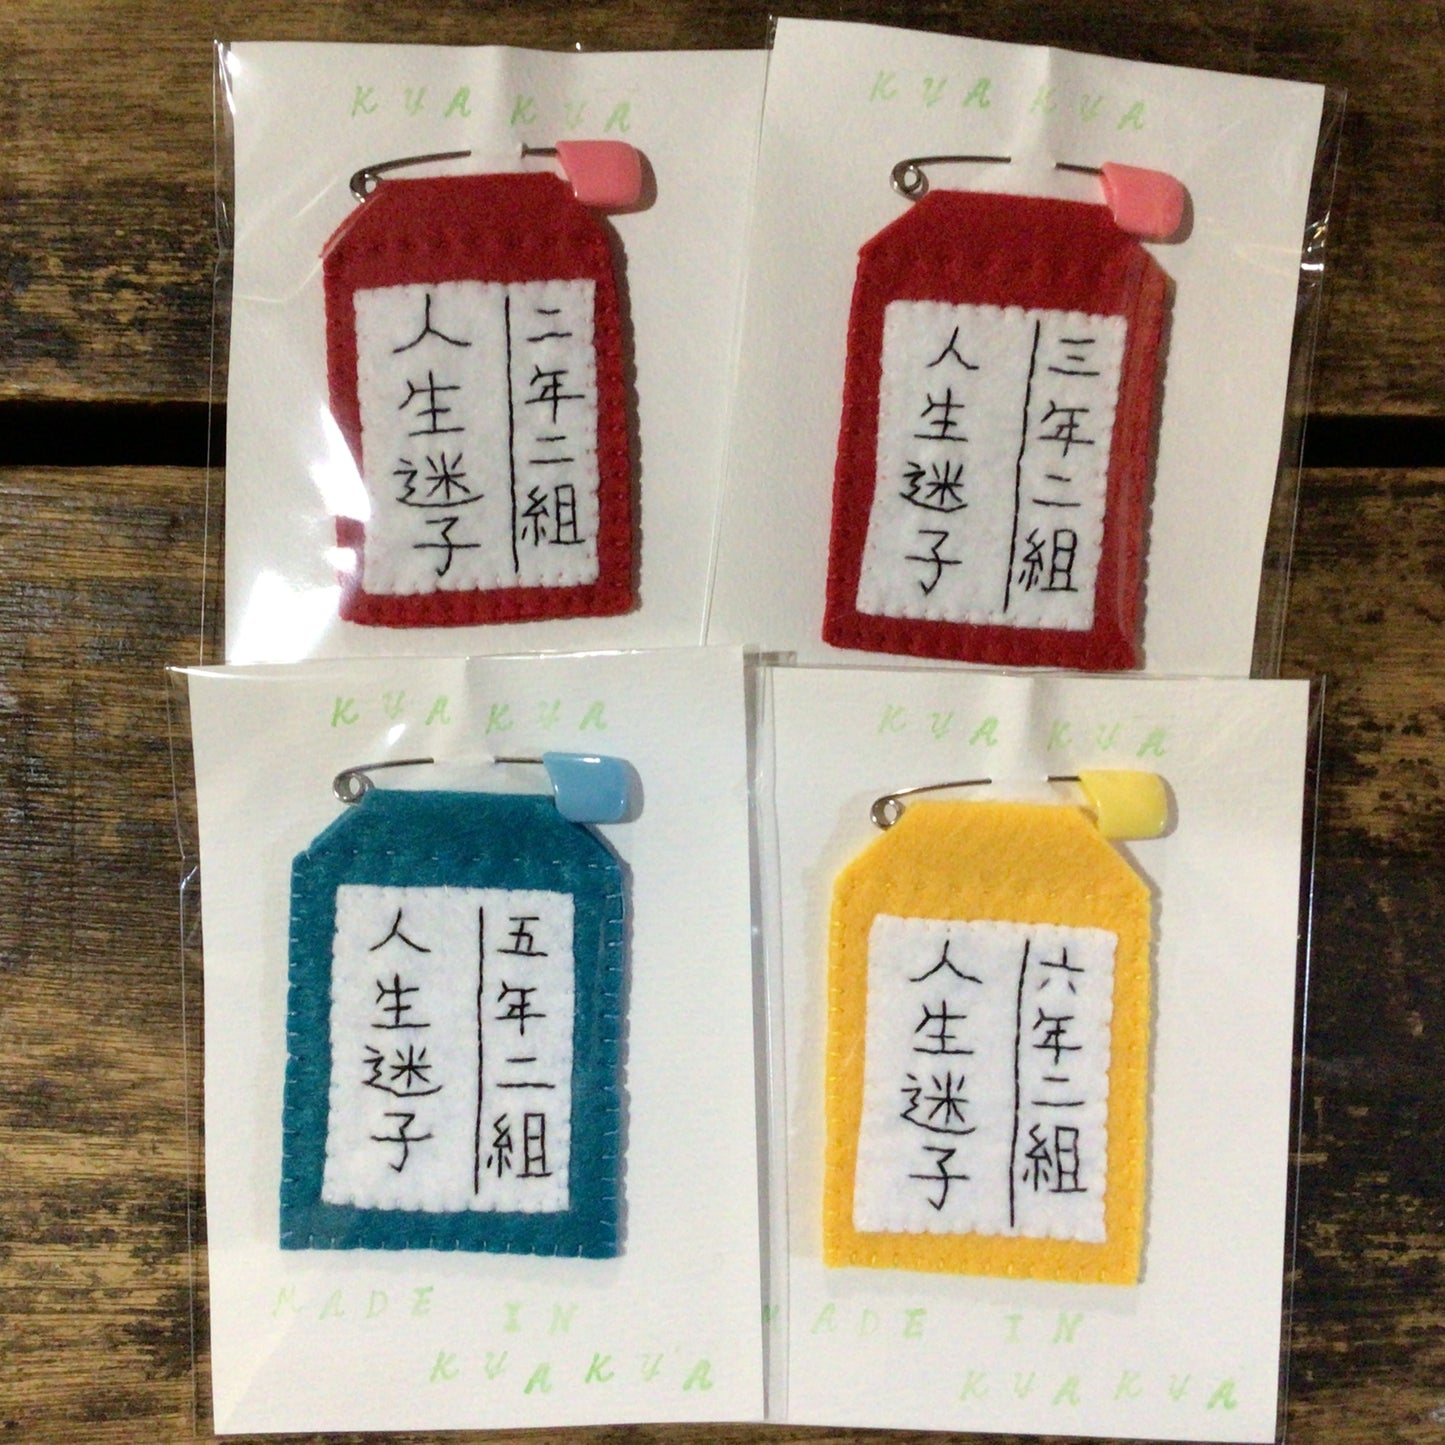 KYAKYA
二年二組
人生迷子
KYAKYA
三年二組
人生迷子
KYAKYA
五年二組
人生迷子
MADE IN
KYAKYA
KYAKYA
六年二組
人生迷子
MADE IN
KYAKYA